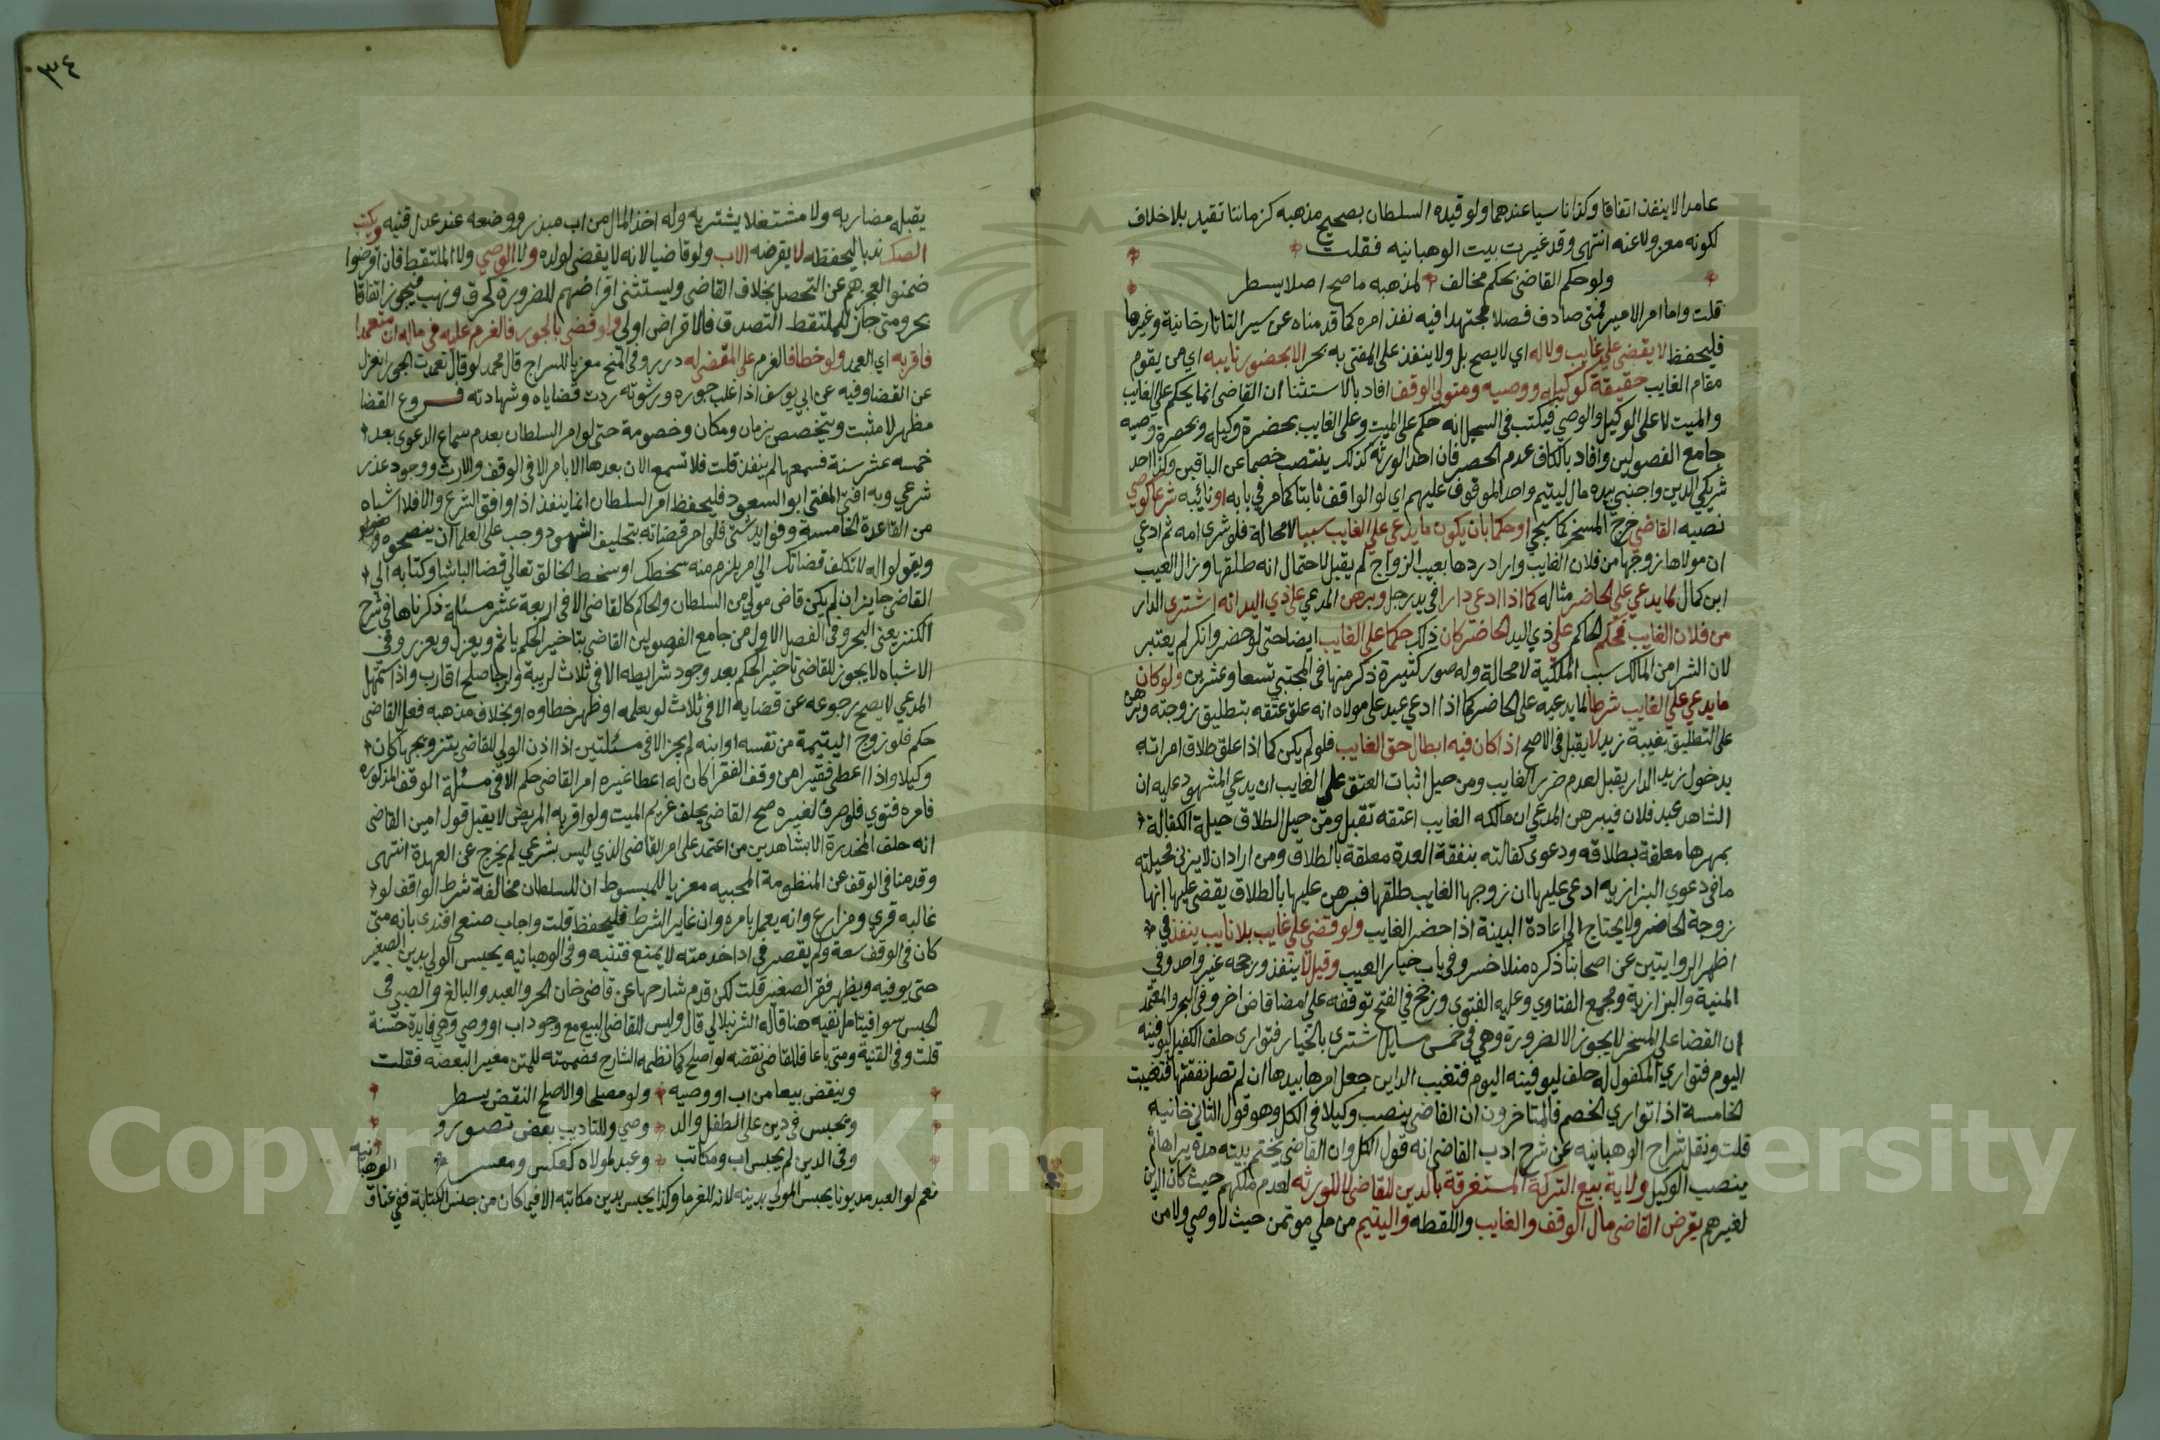 عامدا لا ينفذ اتفاقا وكذا ناسيا عندهما ولو قيده السلطان بصحيح مذهبه كزماننا تقيد بلا خلاف
لكونه معزولا عنه انتهى وقد غيرت بيت الوهبانيه فقلت
ولو حكم القاضي بحكم مخالف لمذهبه ما صح اصلا يسطر
قلت واما امر الامير فمتى صادف فصلا مجتهدا فيه نفذ امره كما قدمناه عن سير التاتارخانية وغيرها
فليحفظ لا يقضى على غايب ولا له اي لا يصح بل ولا ينفذ على المفتى به بحر الا بحضور نايبه اي من يقوم
مقام الغايب حقيقة كوكيله ووصيه ومتولي الوقف افاد بالاستثنا ان القاضي انما يحكم على الغايب
والميت لا على الوكيل والوصي فيكتب في السجل انه حكم على الميت وعلى الغايب بحضرة وكيله وبحضرة وصيه
جامع الفصولين وافاد بالكاف عدم الحصر فان احد الورثه كذلك ينتصب خصما عن الباقين وكذا احد
شريكي الدين واجنبي بيده مال اليتيم واحد الموقوف عليهم اي لو الواقف ثابتا كما مر في بابه او نايبه شرعا كوصي
نصبه القاضي خرج المسخر كما سيجي او حكما بان يكون ما يدعي على الغايب سببا لا محالة فلو شرى امه ثم ادعي
ان مولاها زوجها من فلان الغايب واراد ردها بعيب الزواج لم يقبل لاحتمال انه طلقها وزال العيب
ابن كمال لما يدعي على الحاضر مثاله كما اذا ادعي دارا في يد رجل وبرهن المدعي على ذي اليد انه اشترى الدار
من فلان الغايب فحكم الحاكم على ذي اليد الحاضر كان ذلك حكما على الغايب ايضا حتى لو حضر وانكر لم يعتبر
لان الشرا من المالك سبب الملكية لا محالة وله صور كثيرة ذكر منها في المجتبي تسعا وعشرين ولو كان
ما يدعي على الغايب شرطا لما يدعيه على الحاضر كما اذا ادعي عبد على مولاه انه علق عتقه بتطليق زوجته وبرهن
على التطليق بغيبة زيد لا يقبل في الاصح اذا كان فيه ابطال حق الغايب فلو لم يكن كما اذا علق طلاق امراته
بدخول زيد الدار يقبل لعدم ضرر الغايب ومن حيل اثبات العتق على الغايب ان يدعي المشهود عليه ان
الشاهد عبد فلان فيبرهن المدعي ان مالكه الغايب اعتقه تقبل ومن حيل الطلاق حيلة الكفالة
بمهرها معلقة بطلاقه ودعوى كفالته بنفقة العدة معلقة بالطلاق ومن اراد ان لا يزني فحيلته
ما في دعوي البزازيه ادعى عليها ان زوجها الغايب طلقها فبرهن عليها بالطلاق يقضى عليها انها
زوجة الحاضر ولا يحتاج الى اعادة البينة اذا حضر الغايب ولو قضي على غايب بلا نايب ينفذ في
اظهر الروايتين عن اصحابنا ذكره منلا خسرو في باب خيار العيب وقيل لا ينفذ ورجحه غير واحد وفي
المنية والبزازية ومجمع الفتاوي وعليه الفتوى ورجح في الفتح توقفه على امضا قاض اخر وفي البحر والمعتمد
ان القضا على المسخر لا يجوز الا لضرورة وهي في خمس مسايل اشترى بالخيار فتوارى حلف الكفيل ليوفينه
اليوم فتواري المكفول له حلف ليوفينه اليوم فتغيب الداين جعل امرها بيدها ان لم تصل نفقتها فتغيبت
الخامسة اذا تواري الخصم فالمتاخرون ان القاضي ينصب وكيلا في الكل وهو قول الثاني خانيه
قلت ونقل شراح الوهبانيه عن شرح ادب القاضي انه قول الكل وان القاضي يختم بيته مدة يراها ثم
ينصب الوكيل ولاية بيع التركة المستغرقة بالدين للقاضي لا للورثه لعدم ملكهم حيث كان الدين
لغيرهم يقرض القاضي مال الوقف والغايب واللقطه واليتيم من ملي موتمن حيث لا وصي ولا من
٣٤
يقبله مضاربه ولا مشتغلا يشتريه وله اخذ المال من اب مبذر ووضعه عند عدل قنيه ويكتب
الصك ندبا ليحفظه لا يقرضه الاب ولو قاضيا لانه لا يقضى لولده ولا الوصي ولا الملتقط فان اقرضوا
ضمنوا لعجزهم عن التحصيل بخلاف القاضي ويستثنى اقراضهم للضرورة كحرق ونهب فيجوز اتفاقا
بحر ومتى جاز للملتقط التصدق فالاقراض اولى ولو قضى بالجور فالغرم عليه في ماله ان متعمدا
فاقر به اي العمد ولو خطا فالغرم على المقضى له درر وفي المنح معزيا للسراج قال محمد لو قال تعمدت الجور انعزل
عن القضا وفيه عن ابي يوسف اذا غلب جوره ورشوته ردت قضاياه وشهادته فروع القضا
مظهر لا مثبت ويتخصص بزمان ومكان وخصومة حتى لو امر السلطان بعدم سماع الدعوى بعد
خمسه عشر سنة فسمعها لم ينفذ قلت فلا تسمع الان بعدها الا بامر الا في الوقف والارث ووجود عذر
شرعي وبه افتى المفتي ابو السعود فليحفظ امر السلطان انما ينفذ اذا وافق الشرع والا فلا اشباه
من القاعدة الخامسة وفوايد شتى فلو امر قضاته بتحليف الشهود وجب على العلما ان ينصحوه
ويقولوا له لا تكلف قضاتك الى امر يلزم منه سخطك او سخط الخالق تعالي قضا الباشا وكتابه الى
القاضي جايز ان لم يكن قاض مولي من السلطان والحاكم كالقاضي الا في اربعة عشر مسئلة ذكرناها في شرح
الكنز يعني البحر وفي الفصل الاول من جامع الفصولين القاضي بتاخير الحكم ياثم ويعزل ويعزر وفي
الاشباه لا يجوز للقاضي تاخير الحكم بعد وجود شرايطه الا في ثلاث لريبة ولرجا صلح اقارب واذا استمهل
المدعي لا يصح رجوعه عن قضايه الا في ثلاث لو بعلمه او ظهر خطاوه او بخلاف مذهبه فعل القاضي
حكم فلو زوج اليتيمة من نفسه او ابنه لم يجز الا في مسئلتين اذا اذن الولي للقاضي بتزويجها كان
وكيلا واذا اعطى فقيرا من وقف الفقرا كان له اعطا غيره امر القاضي حكم الا في مسئلة الوقف المذكوره
فامره فتوي فلو صرف لغيره صح القاضي يحلف غريم الميت ولو اقر به المريض لا يقبل قول امين القاضي
انه حلف المخدرة الا بشاهدين من اعتمد على امر القاضي الذي ليس بشرعي لم يخرج عن العهدة انتهى
وقدمنا في الوقف عن المنظومة المحبيه معزيا للمبسوط ان للسلطان مخالفة شرط الواقف لو
غالبه قري ومزارع وانه يعمل بامره وان غاير الشرط فليحفظ قلت واجاب صنعي افندى بانه متى
كان في الوقف سعة ولم يقصر في ادا خدمته لا يمنع فتنبه وفي الوهبانيه يحبس الولي بدين الصغير
حتى يوفيه ويظهر فقر الصغير قلت لكن قدم شارحها عن قاضي خان الحر والعبد والبالغ والصبي في
الحبس سوا فيتامل نفيه هنا قاله الشرنبلالي قال وليس للقاضي البيع مع وجود اب او وصي وهي فايدة حسنة
قلت وفي القنية ومتى باعا فللقاضي نقضه لو اصلح كما نظمه الشارح فضممته للمتن مغيرا لبعضه فقلت
وينقض بيعا من اب او وصيه ولو مصلحا والاصلح النقض يسطر
ويحبس في دين على الطفل والد وصي وللتاديب بعض تصور و
وفي الدين لم يحبس اب ومكاتب وعبد لمولاه كعكس ومعسر
نعم لو العبد مديونا يحبس المولي بدينه لانه للغرما وكذا يحبس بدين مكاتبه الا فيما كان من جنس الكتابة ففي عتاق
الوهبانيه
Copyright © King University
195